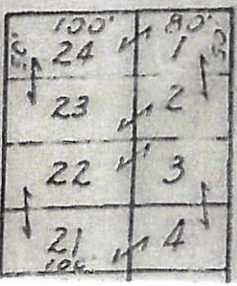 100' 80'
50' 24 1 50'
23 2
22 3
21 4
100